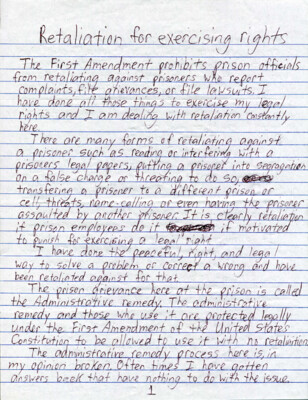 Retaliation for exercising rights
The First Amendment prohibits prison officials
from retaliating against prisoners who report
complaints, file grievances, or file lawsuits. I
have done all those things to exercise my legal
rights and I am dealing with retaliation constantly
here.
There are many forms of retaliating against
a prisoner such as, reading or interfering with a
prisoners legal papers, putting a prisoner into segregation
on a false charge or threating to do so,
transfering a prisoner to a different prison or
cell, threats, name-calling or even having the prisoner
assaulted by another prisoner. It is clearly retaliation
if prison employees do it if motivated
to punish for exercising a legal right.
I have done the peaceful, right, and legal
way to solve a problem or correct a wrong and have
been retaliated against for that.
The prison grievance here at the prison is called
the Administrative remedy. The administrative
remedy and those who use it are protected legally
under the First Amendment of the United States
Constitution to be allowed to use it with no retaliation.
The administrative remedy process here is, in
my opinion broken. Often times I have gotten
answers back that have nothing to do with the issue.
1